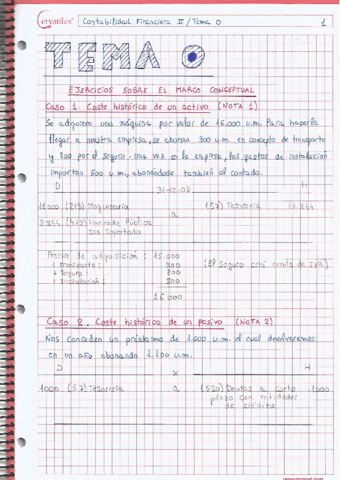 Cervantes Contabilidad Financiera II / Tema 0 1
TEMA 0
EJERCICIOS SOBRE EL MARCO CONCEPTUAL
Caso 1. Coste histórico de un activo (NOTA 1)
Se adquiere una máquina por valor de 15.000 u.m. Para hacerla
llegar a nuestra empresa, se abonan 300 u.m. en concepto de transporte
y 200 por el seguro. Una vez en la empresa, los gastos de instalación
importan 500 u.m., abonándose también al contado.
D H
31-12-08
(213) Maquinaria a (57) Tesorería
(472) Hacienda Pública
IVA Soportado
Precio de adquisición: 15000
Transporte: 300 (El Seguro está exento de IVA)
Seguro: 200
Instalación: 500
16000
Caso 2. Coste histórico de un pasivo (NOTA 2)
Nos conceden un préstamo de 1.000 u.m. el cual devolveremos
en un año abonando 1.100 u.m.
D H
x
1000 (57) Tesorería a (520) Deudas a corto 1000
plazo con entidades
de crédito